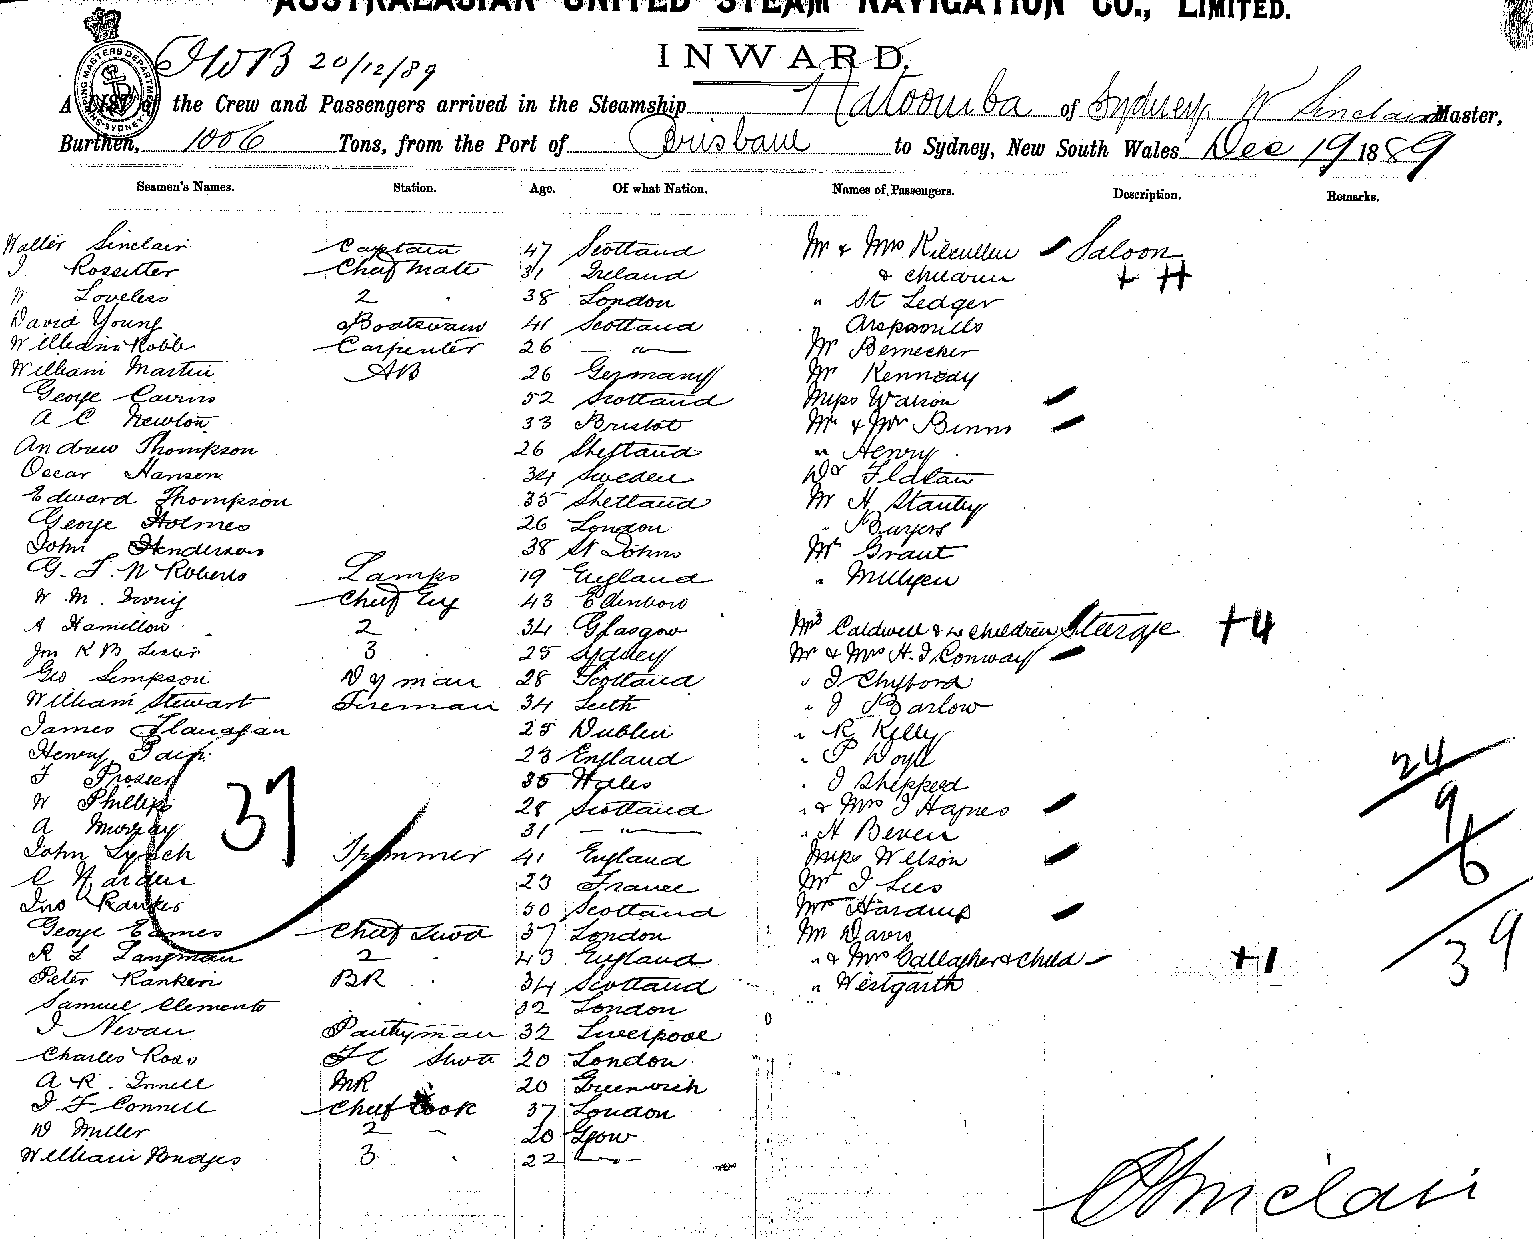 AUSTRALASIAN UNITED STEAM NAVIGATION CO., LIMITED.
20/12/89
INWARD.
A LIST of the Crew and Passengers arrived in the Steamship Katoomba of Sydney, W Sinclair Master,
Burthen, 1006 Tons, from the Port of Brisbane to Sydney, New South Wales Dec 19 1889
Seamen's Names. Station. Age. Of what Nation. Names of Passengers. Description. Remarks.
Walter Sinclair Captain 47 Scotland Mr & Mrs Kilcullen Saloon
J Rossitter Chief Mate 31 Ireland & children + H
W Loveless 2 " 38 London " St Ledger
David Young Boatswain 41 Scotland "
William Robb Carpenter 26 — " — Mr Bernecker
William Martin AB 26 Germany Mr Kennedy
George Cairns 52 Scotland Miss Watson
A C Newton 33 Bristol Mr & Mrs Binns
Andrew Thompson 26 Shetland " Henry
Oscar Hansen 34 Sweden Dr
Edward Thompson 35 Shetland Mr H Stanley
George Holmes 26 London " Burgers
John Henderson 38 St Johns Mr Grant
G. F. W Roberts Lamps 19 England "
W. M. Chief Eng 43 Mrs Caldwell & children Steerage +4
A Hamilton 2 " 34 Glasgow Mr & Mrs H. J Conway
Jm K B 3 " 25 Sydney " J
Geo Simpson 28 Scotland " J Barlow
William Stewart Fireman 34 Leith " R Kelly
James Flanagan 25 Dublin " P Doyle
Henry 23 England " J Shepperd
J Prosser 35 Wales " & Mrs J Haynes
W Phillips 28 Scotland " H Beven
A Murray 31 — " — Miss Wilson
John Lynch Trimmer 41 England Mr J Lees
C Warden 23 France Mrs
Jno Rankin 50 Scotland Mr Davis
George Eames Chief Stwd 37 London " & Mrs Gallagher & Child +1
R L Langman 2 " 43 England " Westgarth
Peter Rankin BR " 34 Scotland
Samuel Clements 32 London
J Nevan Pantryman 32 Liverpool
Charles Ross FC Stwd 20 London
A R. Innell MR 20 Greenwich
J F Connell Chief Cook 37 London
W Miller 2 " 20
William Bridges 3 " 22 — " —
37
24
9
6
39
Sinclair